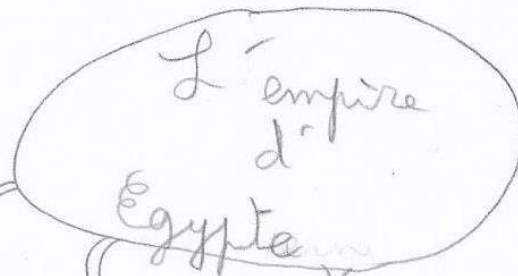 L'empire
d'
Egypte